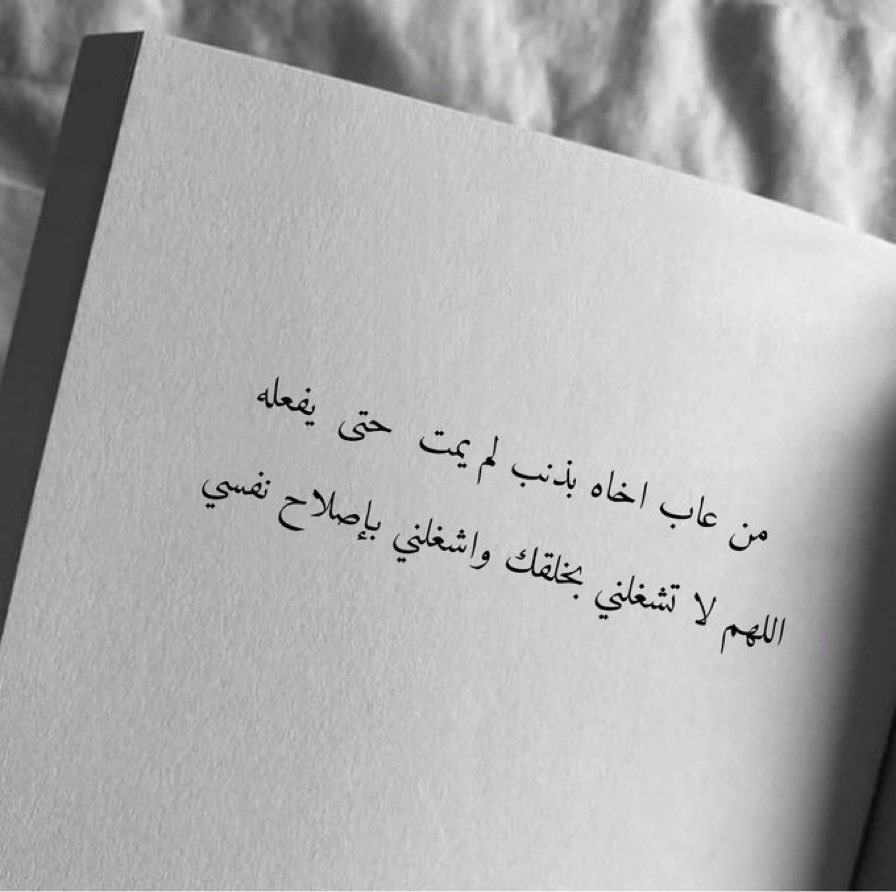 من عاب اخاه بذنب لم يمت حتى يفعله
اللهم لا تشغلني بخلقك واشغلني بإصلاح نفسي